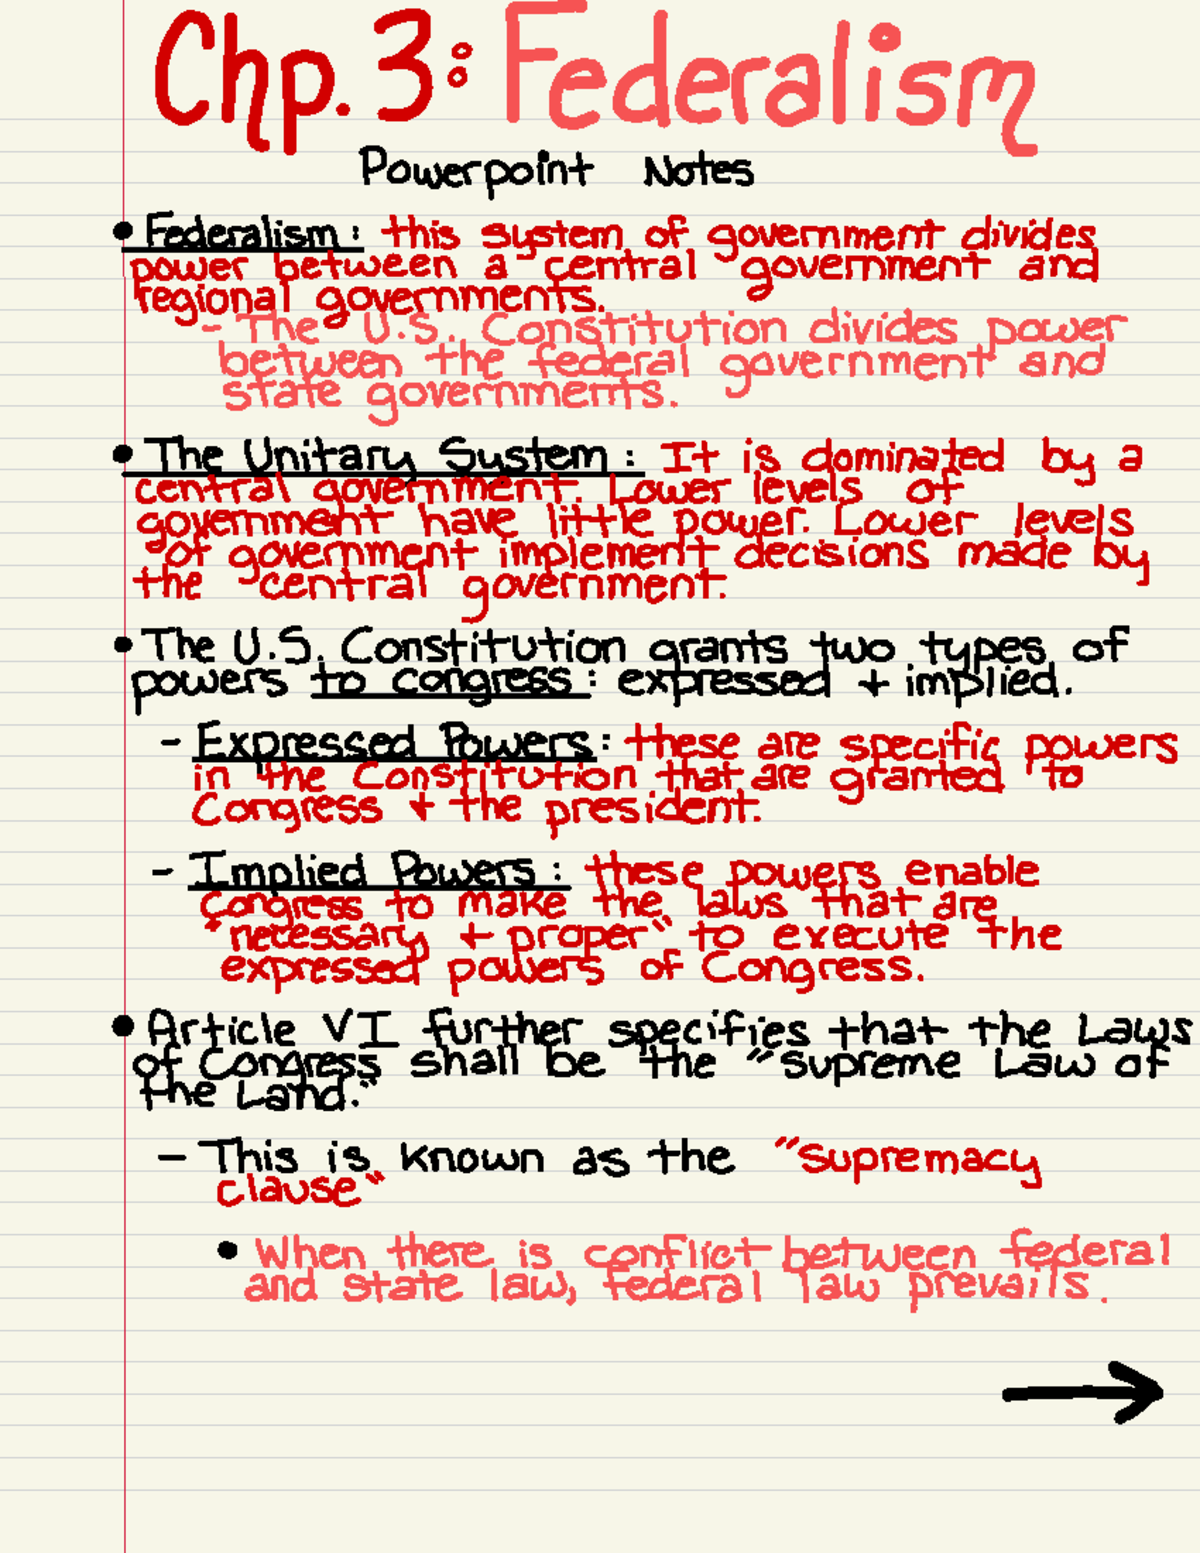 Chp. 3: Federalism
Powerpoint Notes
• Federalism: this system of government divides
power between a central government and
regional governments.
- The U.S. Constitution divides power
between the federal government and
state governments.
• The Unitary System: It is dominated by a
central government. Lower levels of
government have little power. Lower levels
of government implement decisions made by
the central government.
• The U.S. Constitution grants two types of
powers to congress: expressed + implied.
- Expressed Powers: these are specific powers
in the Constitution that are granted to
Congress + the president.
- Implied Powers: these powers enable
Congress to make the laws that are
"necessary + proper" to execute the
expressed powers of Congress.
• Article VI further specifies that the Laws
of Congress shall be the "Supreme Law of
the Land."
- This is known as the "Supremacy
clause"
• When there is conflict between federal
and state law, federal law prevails.